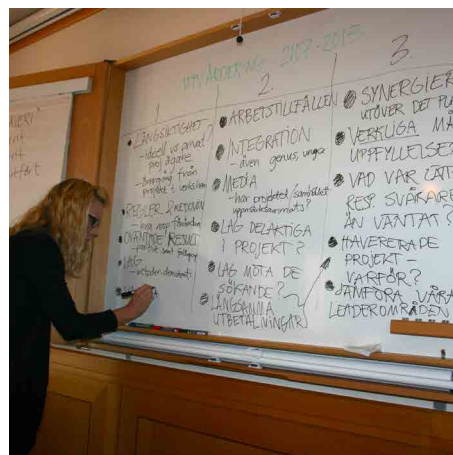 UTVÄRDERING 2007-2015
1.
LÅNGSIKTIGHET
- ideell vs privat
proj. ägare
- övergång från
projekt t. verksamh
REGLER
OVÄNTADE RESULT
LAG
- metoder
2.
ARBETSTILLFÄLLEN
INTEGRATION
- även genus, unga
MEDIA
- har projektet/samhället
uppmärksammats?
LAG DELAKTIGA
I PROJEKT?
LAG MÖTA DE
SÖKANDE?
LÅNGSAMMA
UTBETALNINGAR
3.
SYNERGIER
UTÖVER DET
VERKLIGA
UPPFYLLELSE
VAD VAR
RESP. SVÅRARE
ÄN VÄNTAT?
HAVERERADE
PROJEKT -
VARFÖR?
JÄMFÖRA VÅRA
LEADEROMRÅDEN